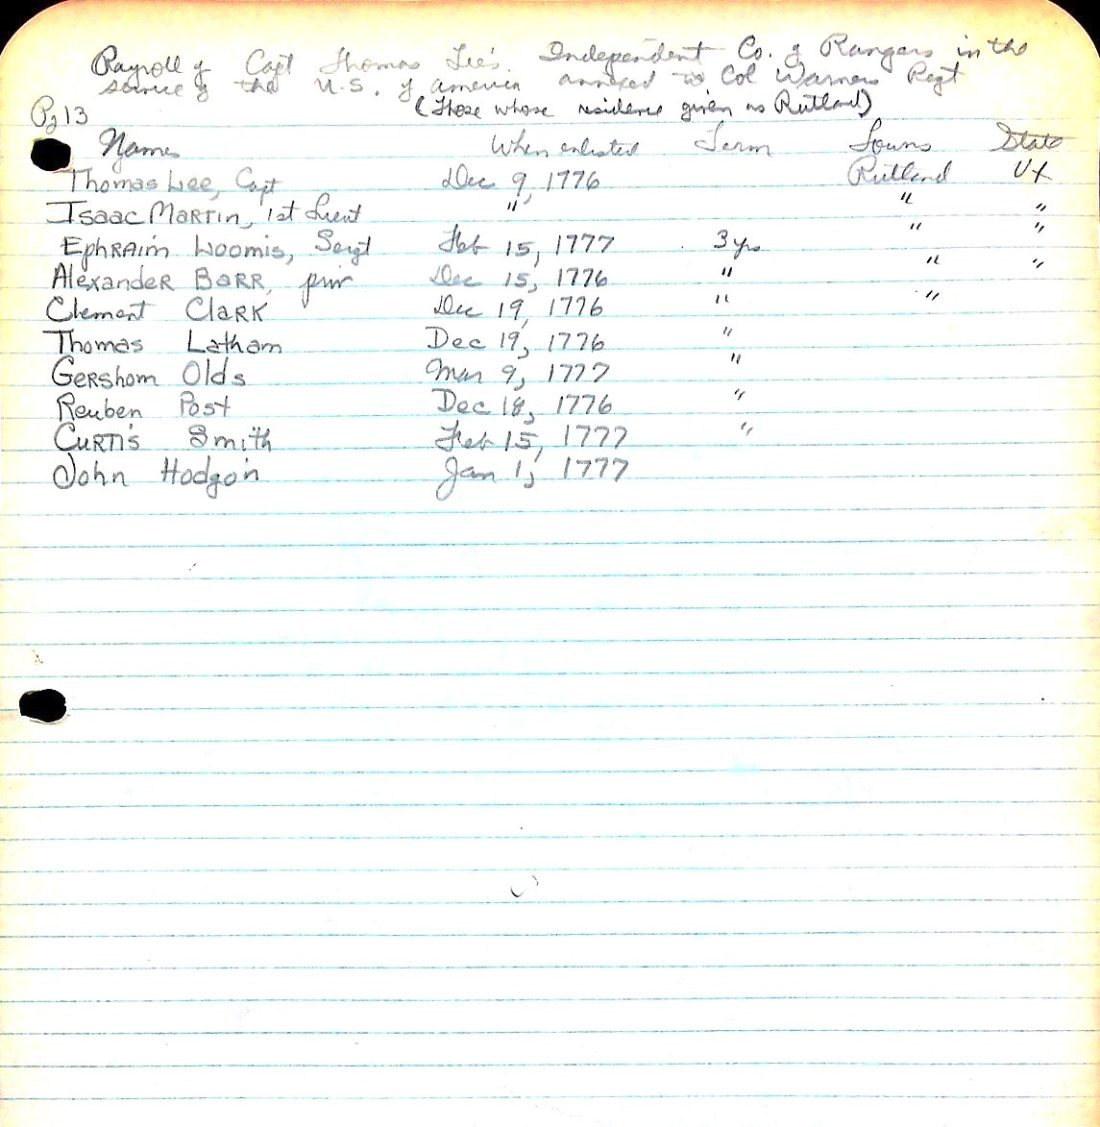 Payroll of Capt Thomas Lee's Independent Co. of Rangers in the
service of the U.S. of America annexed to Col Warners Regt
(Those whose residence given as Rutland)
Pg 13
Names When enlisted Term Towns State
Thomas Lee, Capt Dec 9, 1776 Rutland Vt
Isaac Martin, 1st Lieut " " "
Ephraim Loomis, Sergt Feb 15, 1777 3 yrs " "
Alexander Barr, priv Dec 15, 1776 " " "
Clement Clark Dec 19, 1776 " "
Thomas Latham Dec 19, 1776 "
Gershom Olds Mar 9, 1777 "
Reuben Post Dec 18, 1776 "
Curtis Smith Feb 15, 1777 "
John Hodgon Jan 1, 1777